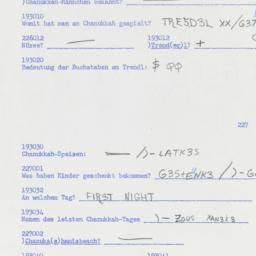 )Chanukkah-Männchen bekannt?
193010
Womit hat man an Chanukkah gespielt? TRE5D3L XX/G3T
226012 193012
Nüsse? — )Trend(er)l? +
193020
Bedeutung der Buchstaben am Trendl: $ QQ
227
193030
Chanukkah-Speisen: — /)- LATK3S
227001
Was haben Kinder geschenkt bekommen? G3STENK3 /)-G
193032
An welchem Tag? FIRST NIGHT
193034
Namen des letzten Chanukkah-Tages )- ZOUS XAN3K3
227002
)Chanuka(s)henisbeach? —